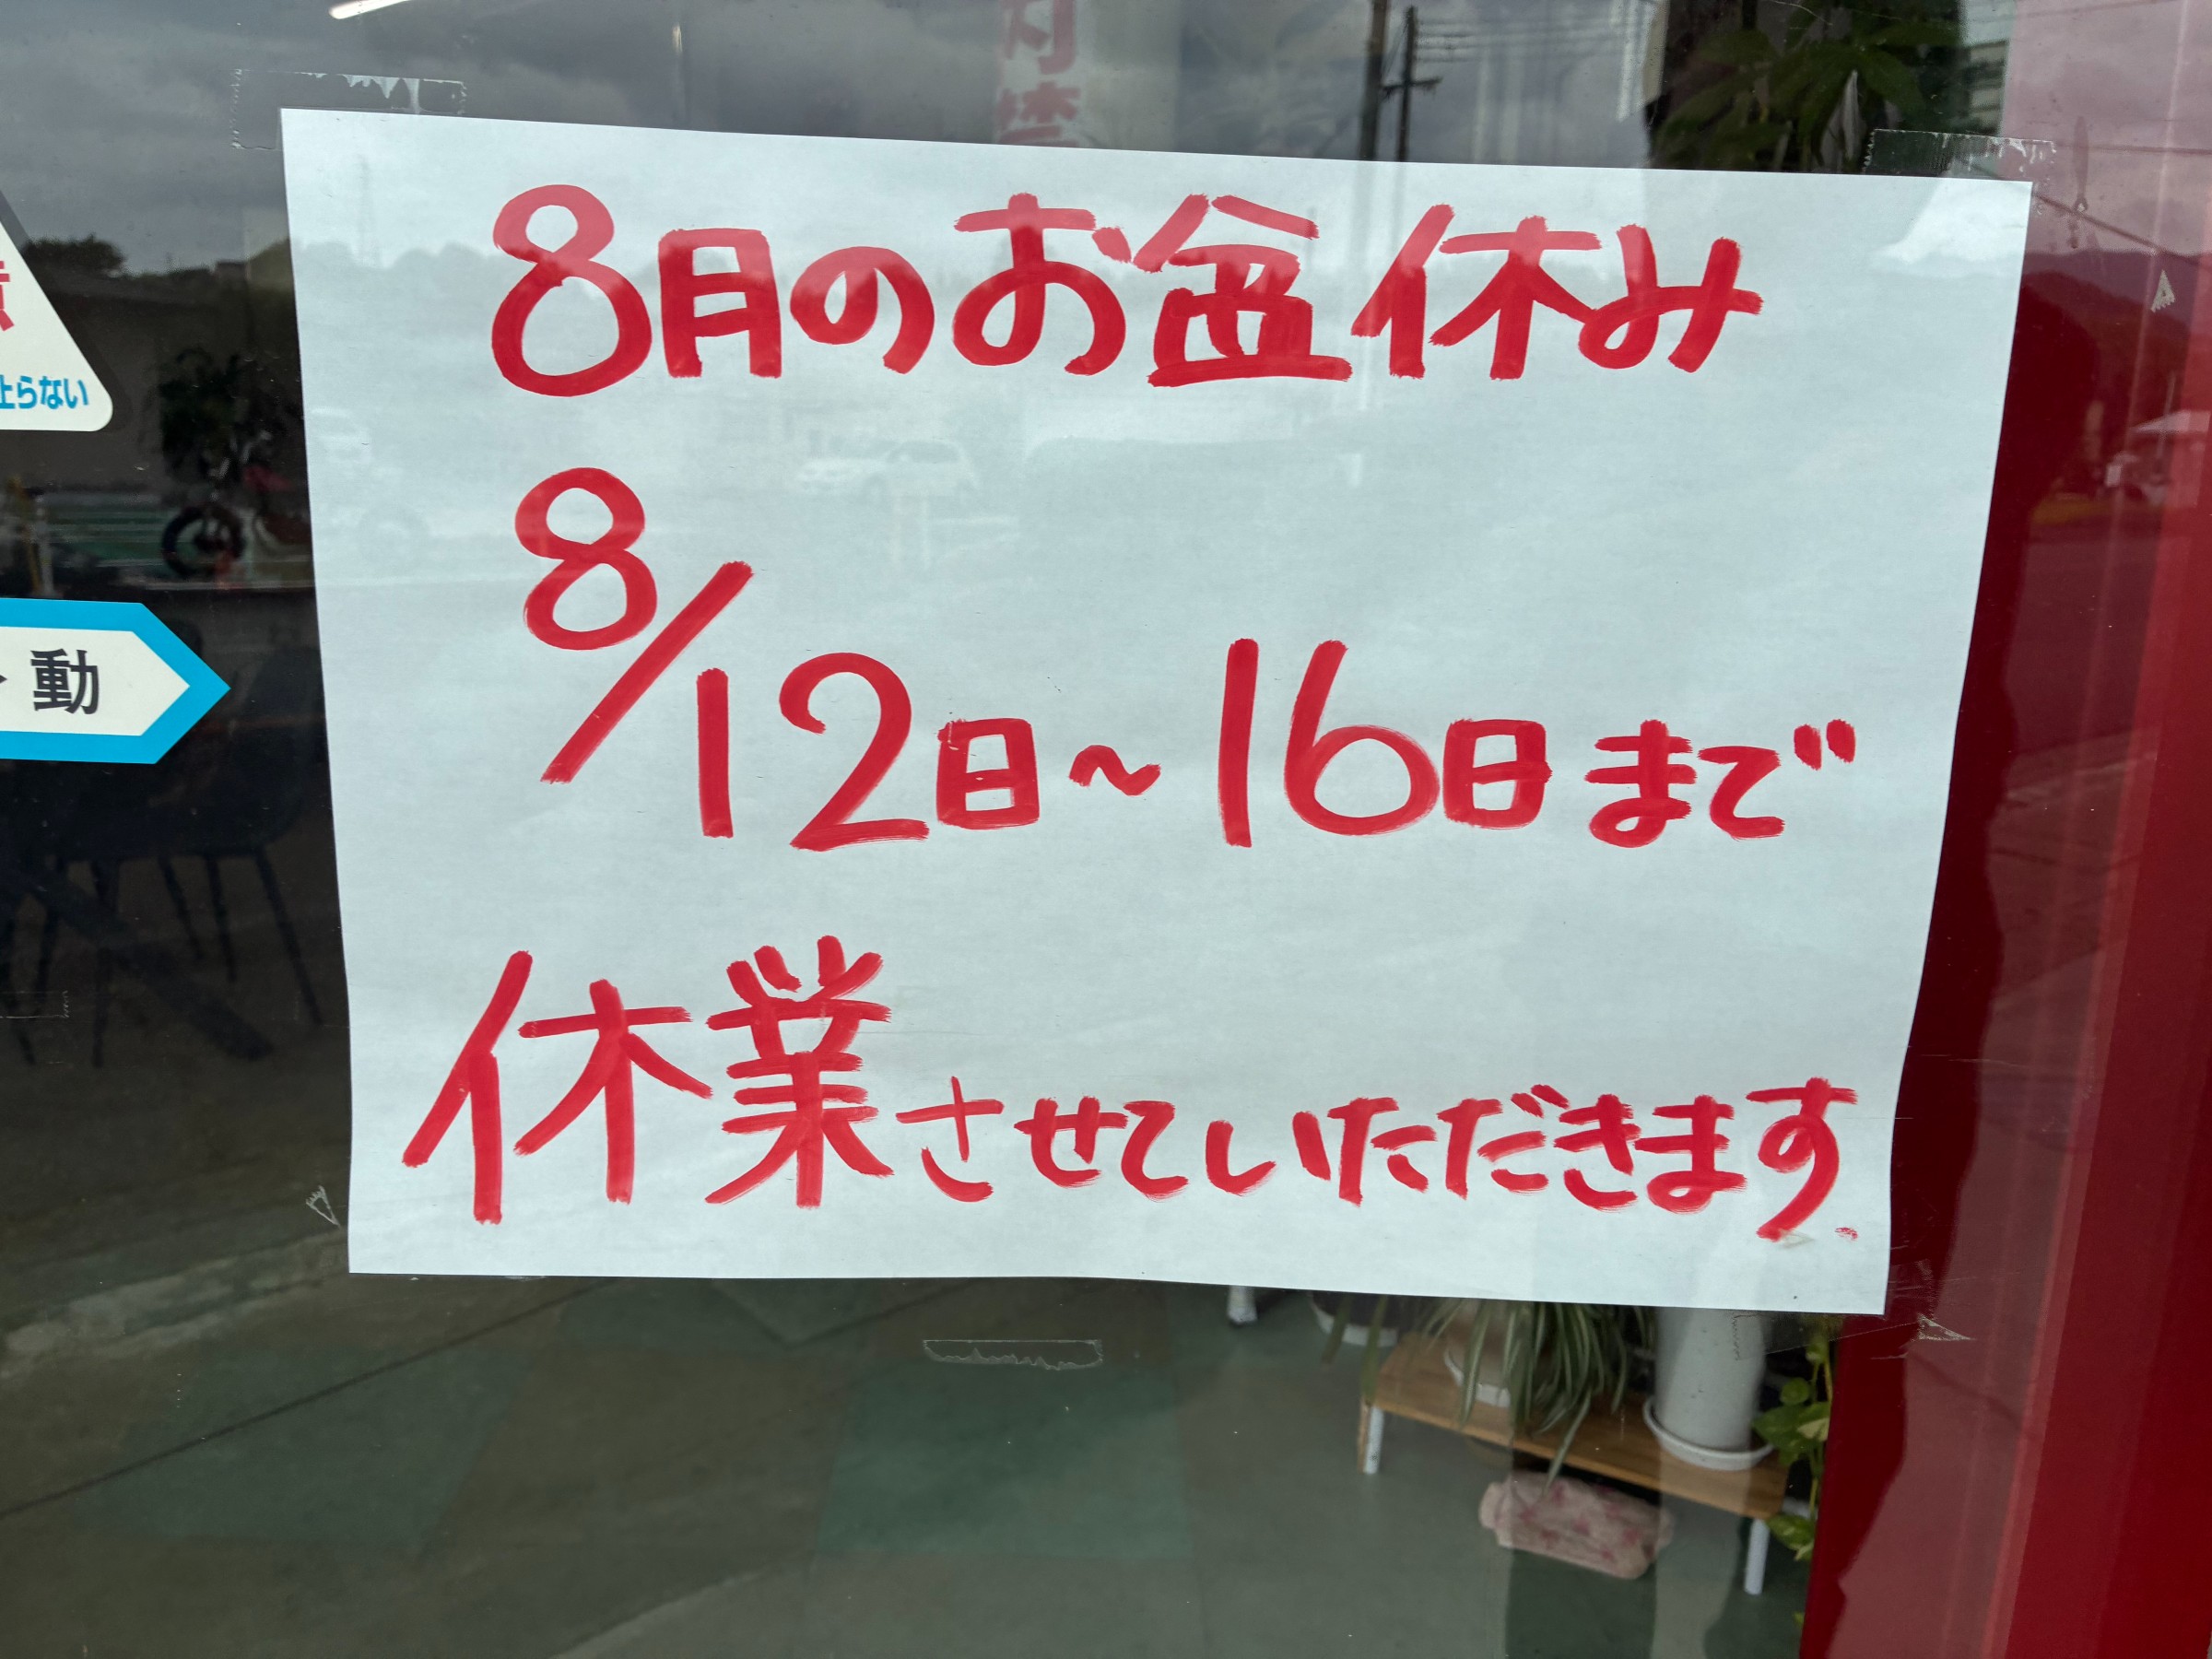 8月のお盆休み
8/12日~16日まで
休業させていただきます.
止らない
動